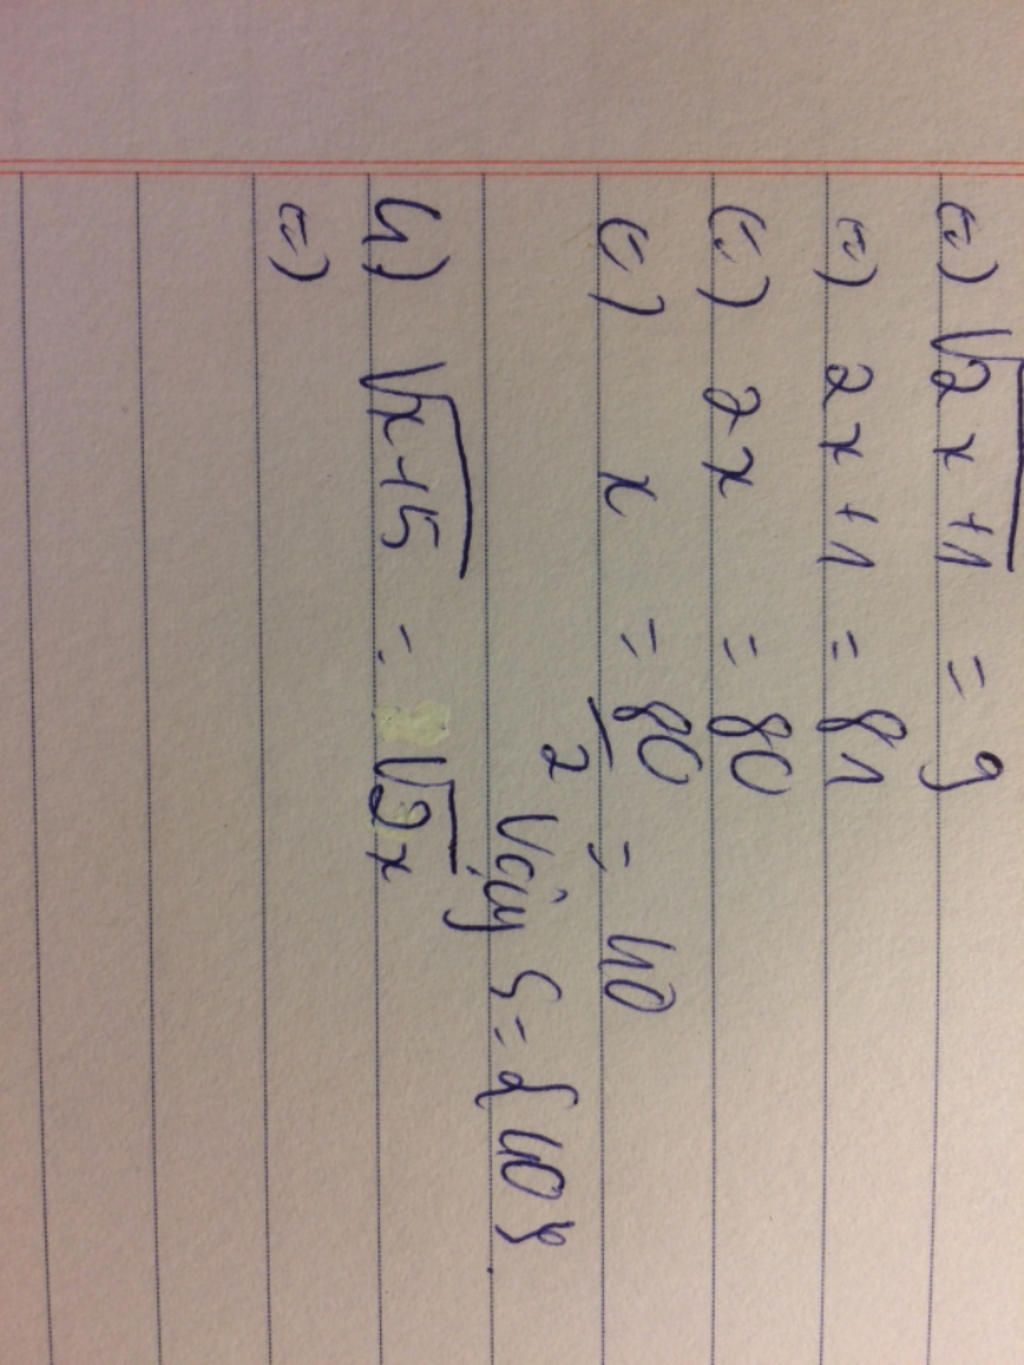 (=) √2x+1 = 9
(=) 2x+1 = 81
(=) 2x = 80
(=) x = 80/2 = 40
Vậy S={40}.
4) √x+15 = √2x
(=)